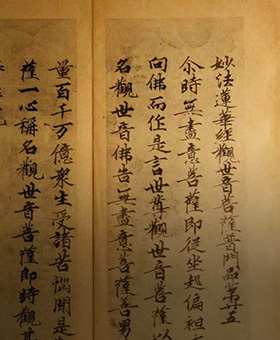 妙法蓮華經觀世音菩薩普門品苐五
尒時無盡意菩薩即從坐起偏袒
向佛而作是言世尊觀世音菩薩以
名觀世音佛告無盡意菩薩善男
量百千万億衆生受諸苦惱聞是
薩一心稱名觀世音菩薩即時觀其